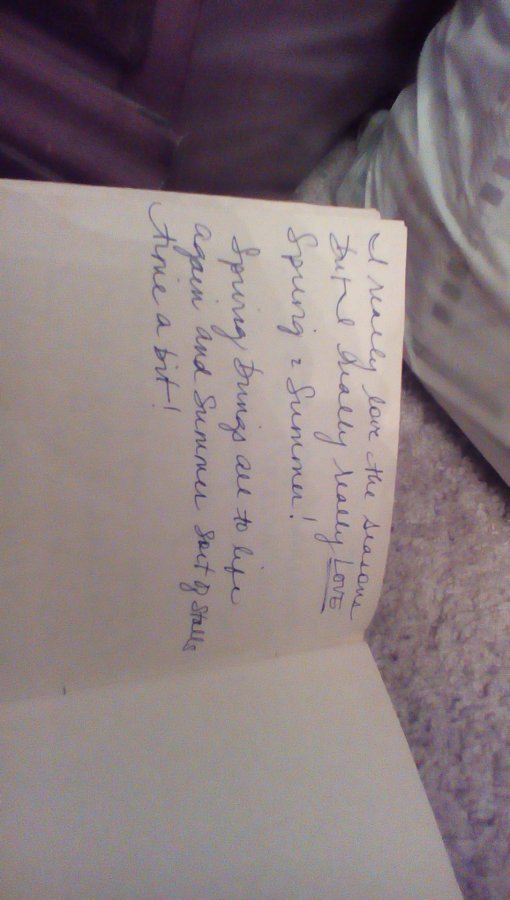 I really love the seasons
But I really really LOVE
Spring & Summer!
Spring brings all to life
again and Summer sort of stalls
time a bit!